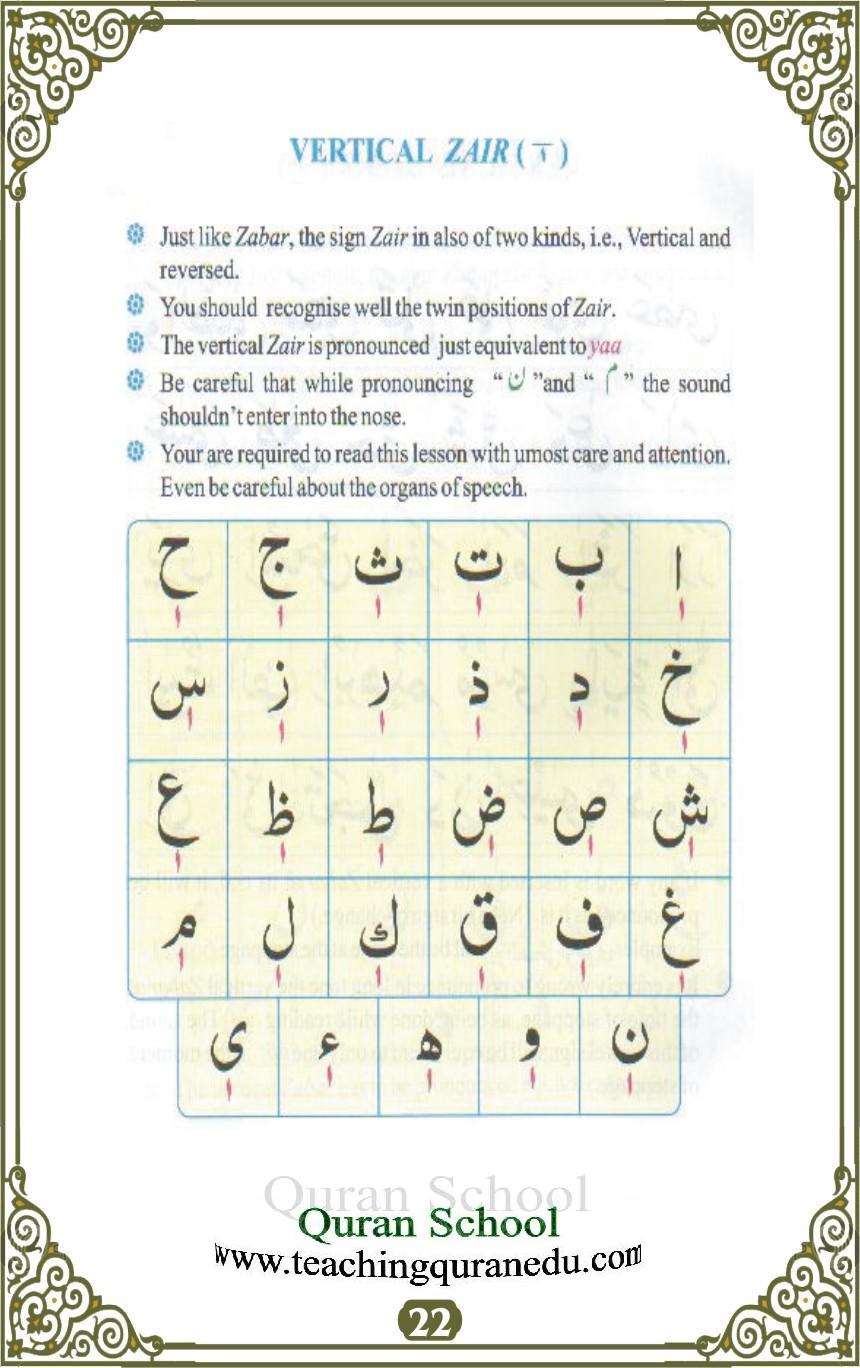 VERTICAL ZAIR ( ٖ )
Just like Zabar, the sign Zair in also of two kinds, i.e., Vertical and
reversed.
You should recognise well the twin positions of Zair.
The vertical Zair is pronounced just equivalent to yaa
Be careful that while pronouncing “ ن ”and “ م ” the sound
shouldn’t enter into the nose.
Your are required to read this lesson with umost care and attention.
Even be careful about the organs of speech.
اٖ بٖ تٖ ثٖ جٖ حٖ
خٖ دٖ ذٖ رٖ زٖ سٖ
شٖ صٖ ضٖ طٖ ظٖ عٖ
غٖ فٖ قٖ كٖ لٖ مٖ
نٖ وٖ هٖ ءٖ يٖ
Quran School
Quran School
www.teachingquranedu.com
22